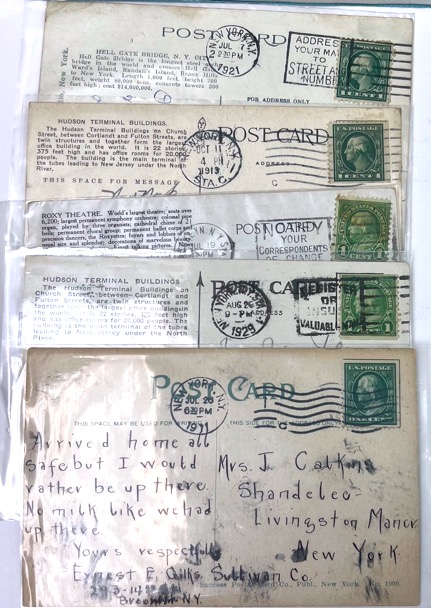 HELL GATE BRIDGE, N. Y. CITY
Hell Gate Bridge is the longest steel arch
bridge in the world and crosses Hell Gate
Ward's Island, Randall's Island, Bronx Kills
to New York. Length 1,000 feet, height 300
feet, weight 80,000 tons, concrete towers 200
feet high; cost $14,000,000.
New York.
NEW YORK, N.Y.
JUL 7
2 30 PM
1921
ADDRESS
YOUR MAIL
TO
STREET AND
NUMBER
FOR ADDRESS ONLY
HUDSON TERMINAL BUILDINGS.
The Hudson Terminal Buildings on Church
Street, between Cortlandt and Fulton Streets, are
twin structures and together form the largest
office building in the world. It is 22 stories,
375 feet high and has office rooms for 20,000
people. The building is the main terminal of
the tubes leading to New Jersey under the North
River.
THIS SPACE FOR MESSAGE
NEW YORK, N.Y.
OCT 11
4 PM
1913
STA. C
POST CARD
ADDRESS
C
U.S. POSTAGE
ROXY THEATRE. World's largest theatre; seats over
6,200; largest permanent symphony orchestra; colossal pipe
organ, played by three organists; cathedral chime of 21
bells; permanent choral group; permanent ballet corps and
precision dancers, the Roxyettes; foyers and lobbies of
size and splendor; decorations of marvelous beauty
JUL 19
NOTIFY
YOUR
CORRESPONDENTS
OF CHANGE
HUDSON TERMINAL BUILDINGS
The Hudson Terminal Buildings on
Church Street, between Cortlandt and
Fulton Streets, are twin structures and
office building in the
world. It is 22 stories, 375 feet
high and has office rooms for 20,000 people. The
building is the main terminal of the tubes
leading to New Jersey under the North
River.
POST CARD
AUG 26
9 PM
1929
ADDRESS
REGISTER
OR
INSURE
VALUABLE MAIL
1
POST CARD
NEW YORK, N.Y.
JUL 26
6 30 PM
1911
C
U.S. POSTAGE
THIS SPACE MAY BE USED FOR
THIS SIDE FOR THE ADDRESS ONLY
Arrived home all
safe but I would
rather be up there
No milk like we had
up there.
Yours respectfully
Ernest E. Gilks
Brooklyn N.Y.
Mrs. J. Calkins
Shandelee
Livingston Manor
New York.
Sullivan Co.
Success Postal Card Co., Publ., New York. No. 1090.